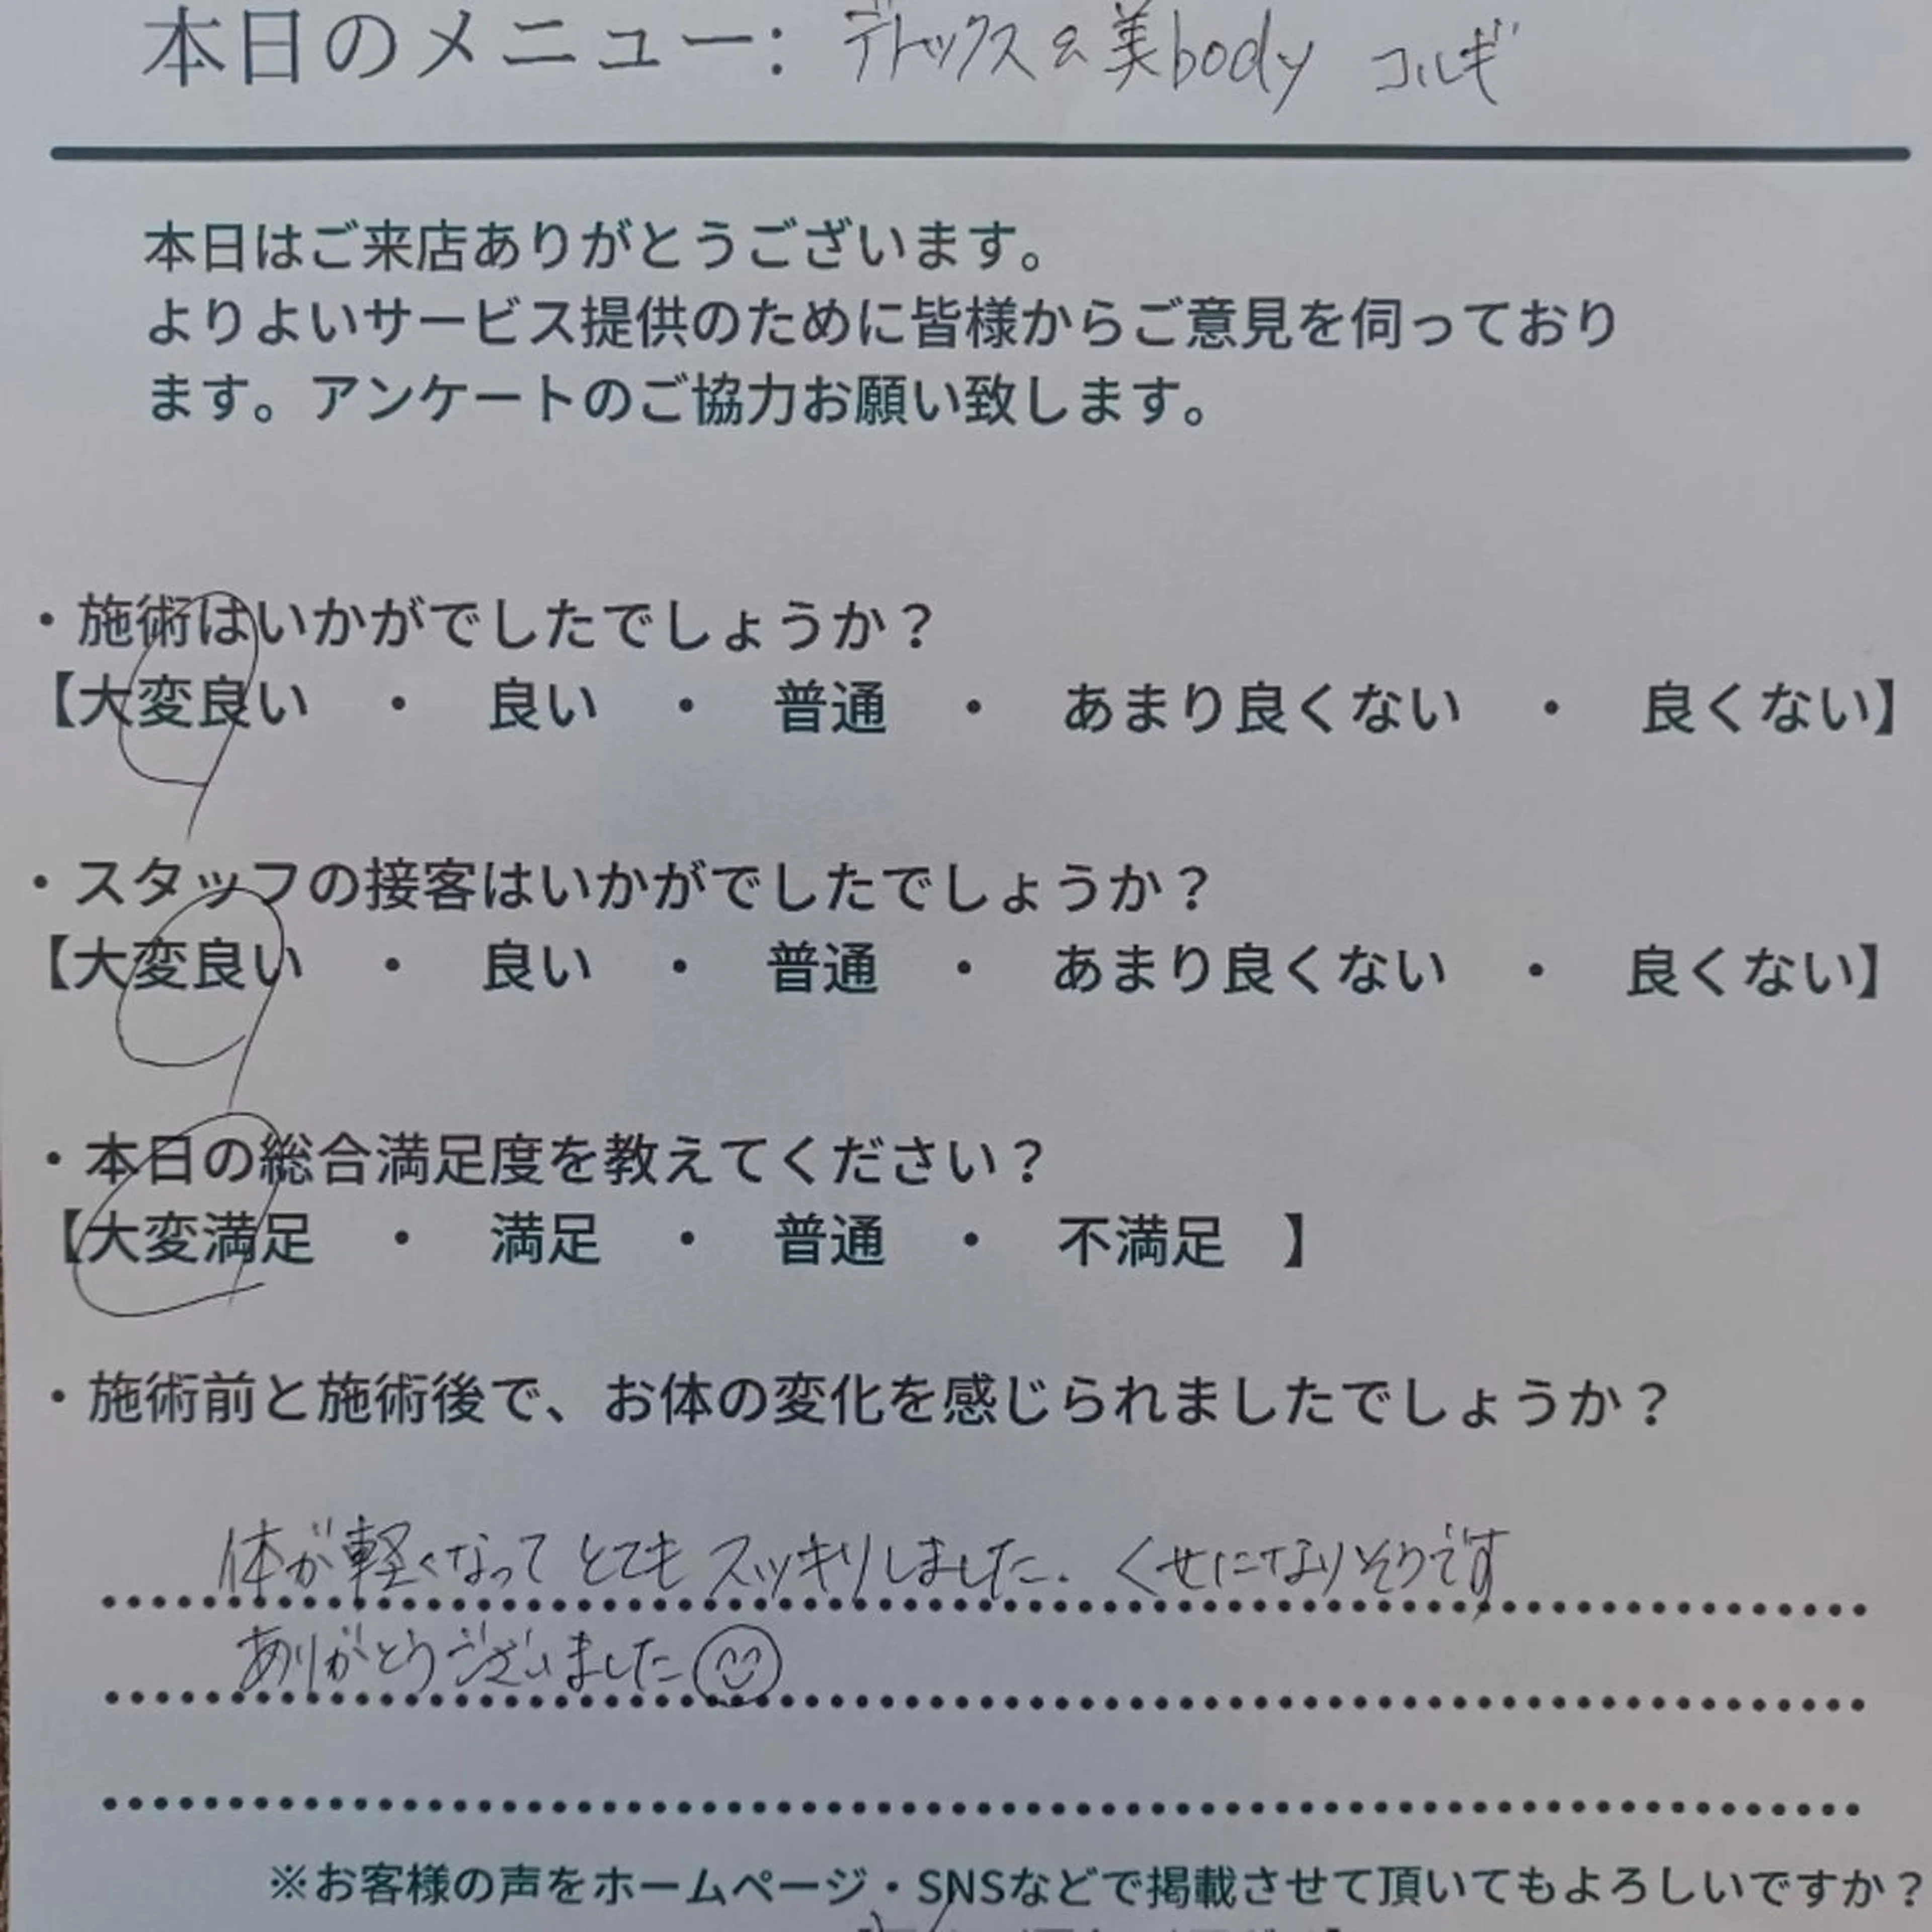 本日のメニュー: デトックス&美body コルギ
本日はご来店ありがとうございます。
よりよいサービス提供のために皆様からご意見を伺っており
ます。アンケートのご協力お願い致します。
・施術はいかがでしたでしょうか？
【大変良い ・ 良い ・ 普通 ・ あまり良くない ・ 良くない】
・スタッフの接客はいかがでしたでしょうか？
【大変良い ・ 良い ・ 普通 ・ あまり良くない ・ 良くない】
・本日の総合満足度を教えてください？
【大変満足 ・ 満足 ・ 普通 ・ 不満足 】
・施術前と施術後で、お体の変化を感じられましたでしょうか？
体が軽くなって とても スッキリしました. くせになりそうです
ありがとうございました
※お客様の声をホームページ・SNSなどで掲載させて頂いてもよろしいですか？